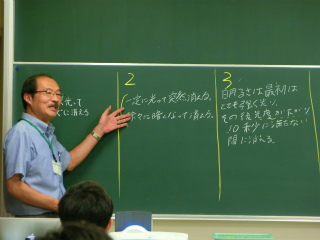 光って
ぐに消える
2
一定に光って突然消える。
徐々に暗くなって消える。
3
明るさは最初は
とても明るく光り
その後光度が下がり
10秒に満たない
間に消える。